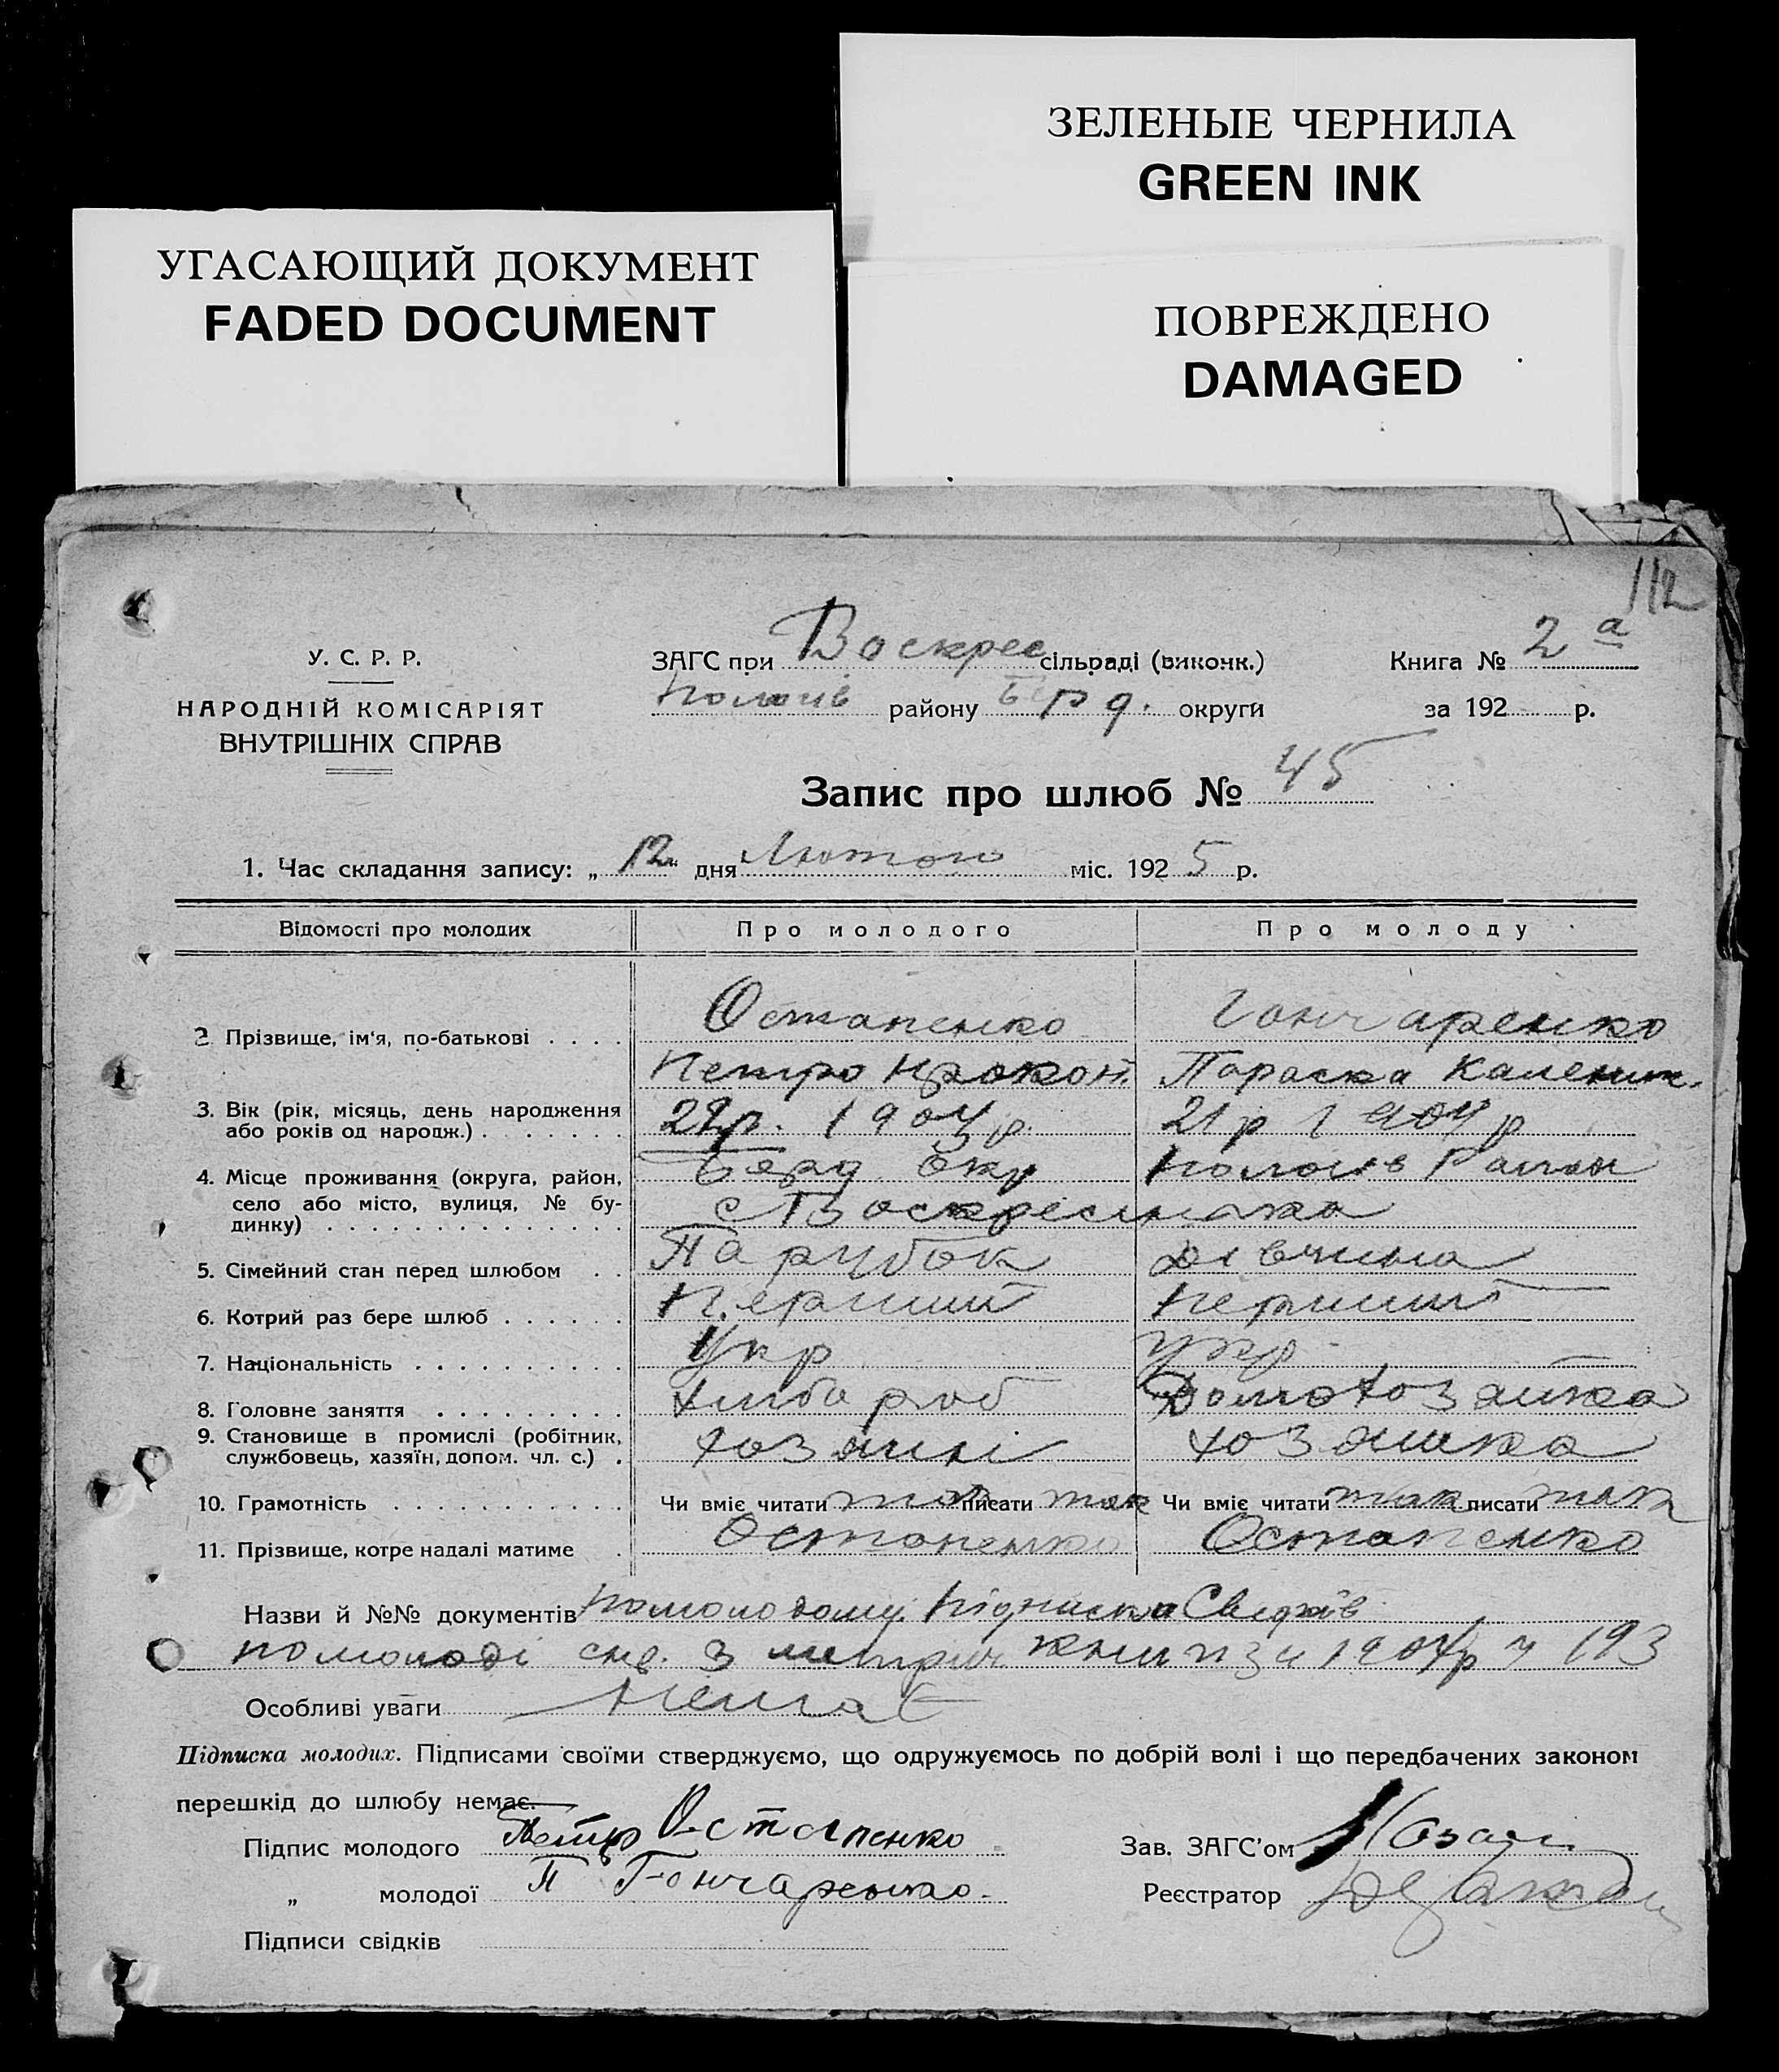 ЗЕЛЕНЫЕ ЧЕРНИЛА
GREEN INK
УГАСАЮЩИЙ ДОКУМЕНТ
FADED DOCUMENT
ПОВРЕЖДЕНО
DAMAGED
112
У. С. Р. Р.
НАРОДНІЙ КОМІСАРІЯТ
ВНУТРІШНІХ СПРАВ
ЗАГС при Воскрес сільраді (виконк.)
Пологів району Берд. округи
Книга № 2 а
за 192 р.
Запис про шлюб № 45
1. Час складання запису: „ 12 " дня Лютого міс. 192 5 р.
Відомості про молодих Про молодого Про молоду
2. Прізвище, ім'я, по-батькові . . . . Остапенко Гончаренко
Петро Прокоп. Параска Каленик.
3. Вік (рік, місяць, день народження
або років од народж.) . . . . . . . 22р. 1904 р. 21 р 1904 р
4. Місце проживання (округа, район, Берд Окр Пологів Район
село або місто, вулиця, № бу-
динку) . . . . . . . . . . . . . . с Воскресенка
5. Сімейний стан перед шлюбом . . Парубок дівчина
6. Котрий раз бере шлюб . . . . . . Перший Перший
7. Національність . . . . . . . . . . Укр Укр
8. Головне заняття . . . . . . . . . Хлібороб Домохозяйка
9. Становище в промислі (робітник,
службовець, хазяїн, допом. чл. с.) . хозяин хозяйка
10. Грамотність . . . . . . . . . . . Чи вміє читати так писати так Чи вміє читати так писати так
11. Прізвище, котре надалі матиме . Остапенко Остапенко
Назви й №№ документів по молодому підписка Свідків
по молоді з метрич книги за 1904р ч 193
Особливі уваги Немає
Підписка молодих. Підписами своїми стверджуємо, що одружуємось по добрій волі і що передбачених законом
перешкід до шлюбу немає.
Підпис молодого Петро Остапенко Зав. ЗАГС'ом
„ молодої П Гончаренко. Реєстратор
Підписи свідків